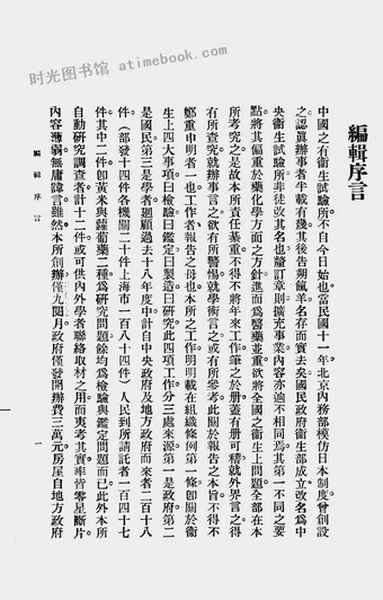 时光图书馆 atimebook.com
編輯序言
中國之有衛生試驗所不自今日始也當民國十一年北京內務部模仿日本制度曾創設
之認眞辦事者半載有幾其後告朔餼羊名存而實去矣國民政府衛生部成立改名爲中
央衛生試驗所非徒改其名也釐訂章則擴充事業內容亦迥不相同焉其第一不同之要
點將其偏重於藥化學方面之方針進而爲醫藥並重欲將全國之衛生上問題全部在本
所考究之是故本所責任綦重不得不將年來工作筆之於册蓋有册可稽就外界言之得
有所查究就辦事言之欲有所警惕就學術言之或有所參考此關於報告之本旨不得不
鄭重申明者一也工作者報告之母也本所之工作明明載在組織條例第一條卽關於衛
生上四大事項曰檢驗曰鑑定曰製造曰研究此四項工作分三處來源第一是政府第二
是國民第三是學者迴顧過去十八年度中計自中央政府及地方政府而來者二百十八
件（部發十四件各機關二十件上海市一百八十四件）人民到所請託者一百四十七
件其中二件卽黃米與蘿蔔藥二種爲研究問題餘均爲檢驗與鑑定問題而已此外本所
自動研究調查者計十二件或可供內外學者聯絡取材之用而夷考其實率皆零星斷片
內容薄弱無庸諱言雖然本所創辦僅九閱月政府僅發開辦費三萬元房屋自地方政府
編輯序言
一